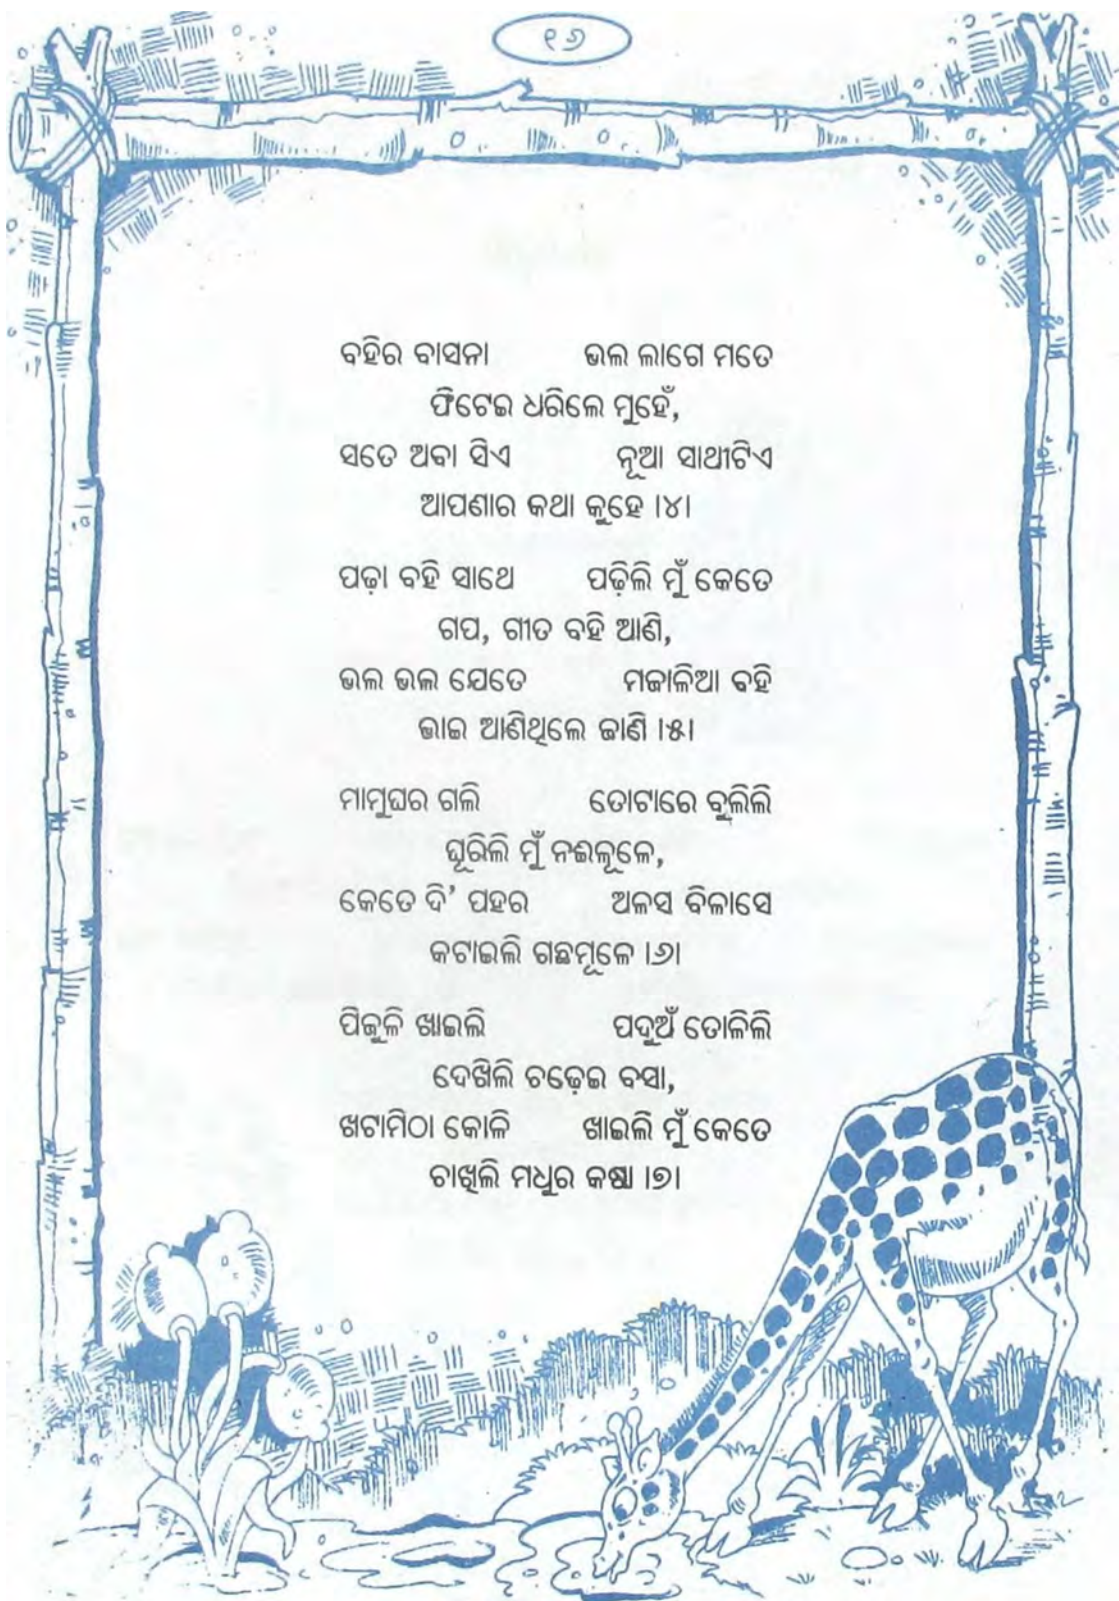 ୧୬
ବହିର ବାସନା ଭଲ ଲାଗେ ମତେ
ଫିଟେଇ ଧରିଲେ ମୁହେଁ,
ସତେ ଅବା ସିଏ ନୂଆ ସାଥୀଟିଏ
ଆପଣାର କଥା କୁହେ ।୪।
ପଢ଼ା ବହି ସାଥେ ପଢ଼ିଲି ମୁଁ କେତେ
ଗପ, ଗୀତ ବହି ଆଣି,
ଭଲ ଭଲ ଯେତେ ମଜାଳିଆ ବହି
ଭାଇ ଆଣିଥିଲେ ଜାଣି ।୫।
ମାମୁଘର ଗଲି ତୋଟାରେ ବୁଲିଲି
ଘୂରିଲି ମୁଁ ନଈକୂଳେ,
କେତେ ଦି’ ପହର ଅଳସ ବିଳାସେ
କଟାଇଲି ଗଛମୂଳେ ।୬।
ପିଜୁଳି ଖାଇଲି ପଦୁଅଁ ତୋଳିଲି
ଦେଖିଲି ଚଢ଼େଇ ବସା,
ଖଟାମିଠା କୋଳି ଖାଇଲି ମୁଁ କେତେ
ଚାଖିଲି ମଧୁର କଷା ।୭।